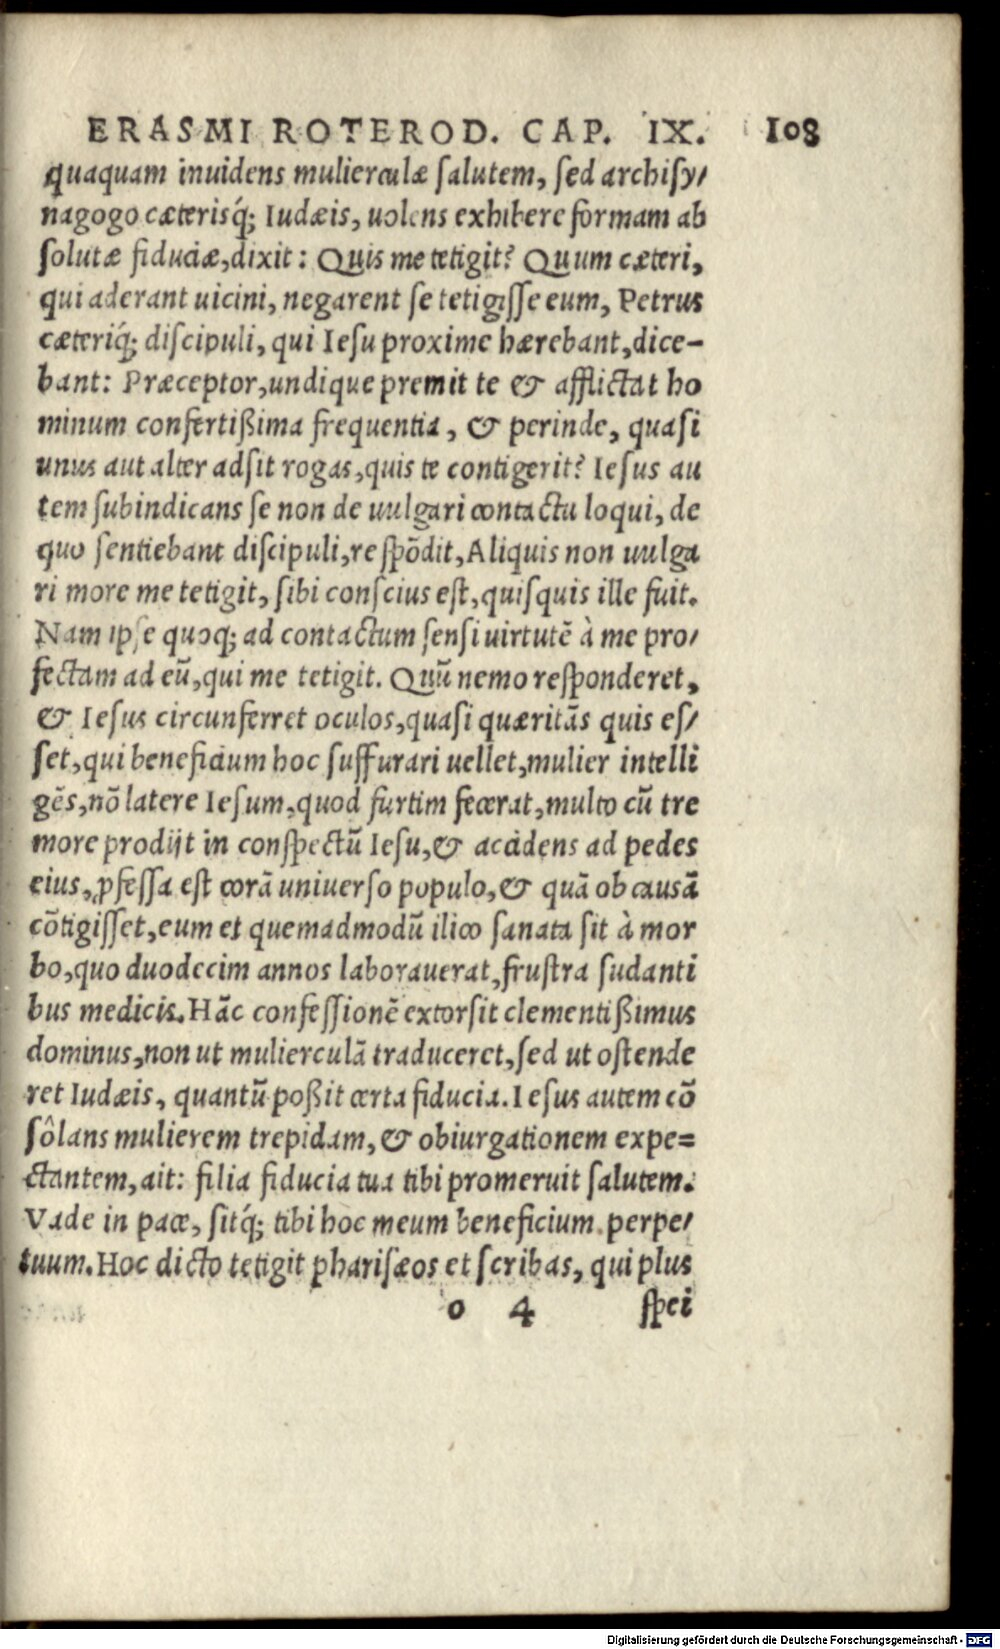 ERASMI ROTEROD. CAP. IX. 108
quaquam inuidens mulierculæ salutem, sed archisy/
nagogo cæterisq́; Iudæis, uolens exhibere formam ab
solutæ fiduciæ, dixit: Quis me tetigit? Quum cæteri,
qui aderant uicini, negarent se tetigisse eum, Petrus
cæteriq́; discipuli, qui Iesu proxime hærebant, dice-
bant: Præceptor, undique premit te & afflictat ho
minum confertißima frequentia, & perinde, quasi
unus aut alter adsit rogas, quis te contigerit? Iesus au
tem subindicans se non de uulgari contactu loqui, de
quo sentiebant discipuli, respõdit, Aliquis non uulga
ri more me tetigit, sibi conscius est, quisquis ille fuit.
Nam ipse quoq; ad contactum sensi uirtutẽ à me pro/
fectam ad eũ, qui me tetigit. Quũ nemo responderet,
& Iesus circunferret oculos, quasi quæritãs quis es/
set, qui beneficium hoc suffurari uellet, mulier intelli
gẽs, nõ latere Iesum, quod furtim fecerat, multo cũ tre
more prodijt in conspectũ Iesu, & accidens ad pedes
eius, ꝓfessa est corã uniuerso populo, & quã ob causã
cõtigisset, eum et quemadmodũ ilico sanata sit à mor
bo, quo duodecim annos laborauerat, frustra sudanti
bus medicis. Hãc confessionẽ extorsit clementißimus
dominus, non ut mulierculã traduceret, sed ut ostende
ret Iudæis, quantũ poßit certa fiducia. Iesus autem cõ
sôlans mulierem trepidam, & obiurgationem expe=
ctantem, ait: filia fiducia tua tibi promeruit salutem.
Vade in pace, sitq́; tibi hoc meum beneficium perpe/
tuum. Hoc dicto tetigit pharisæos et scribas, qui plus
o 4 spei
Digitalisierung gefördert durch die Deutsche Forschungsgemeinschaft - DFG